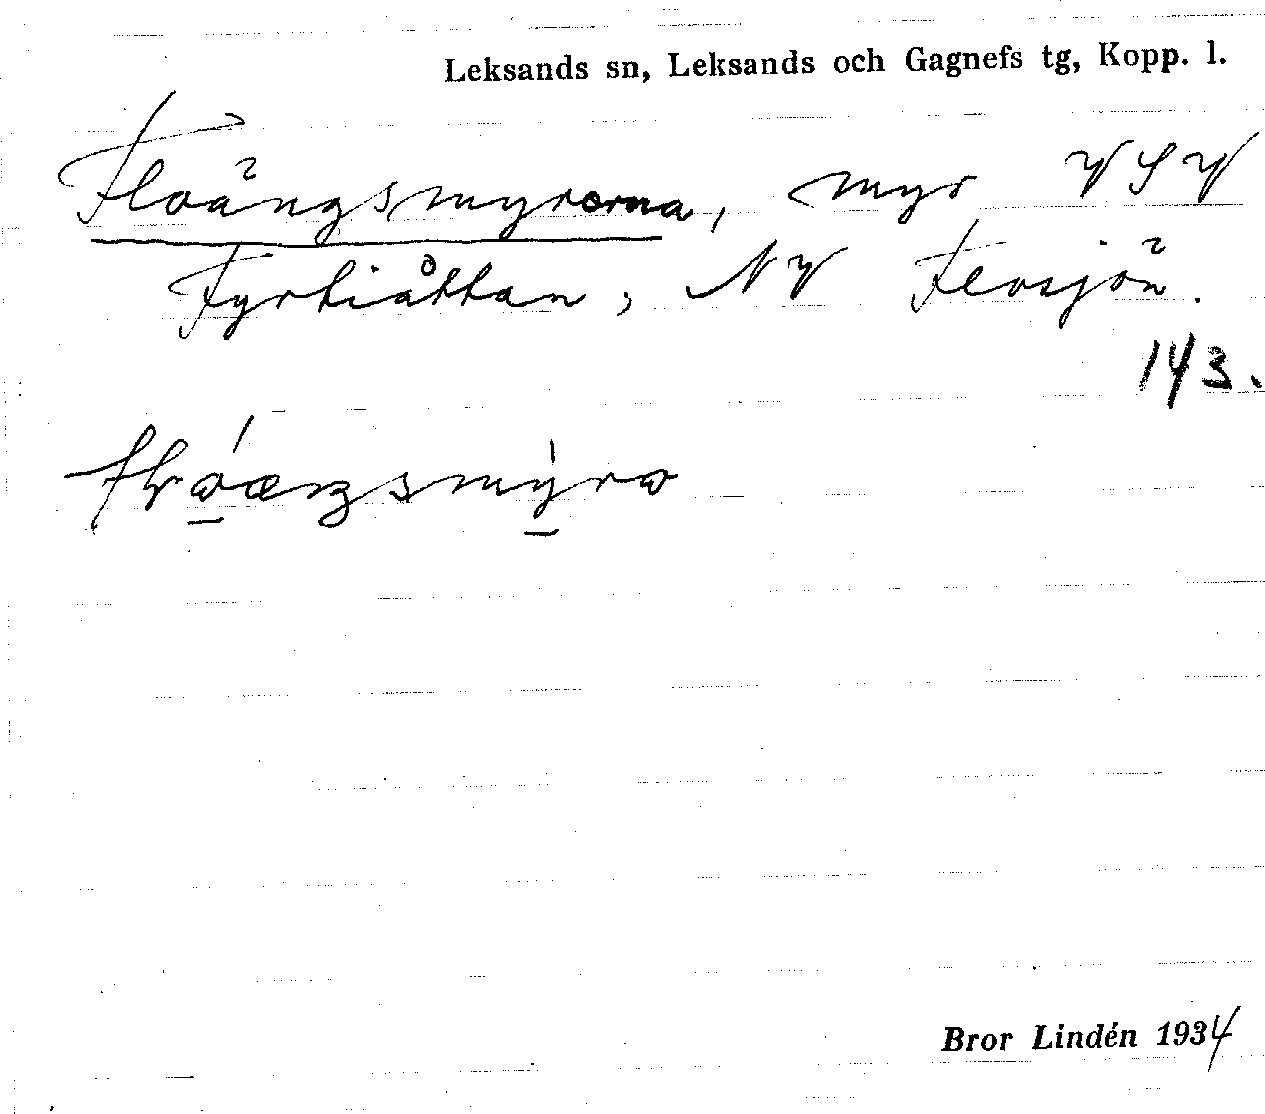 Leksands sn, Leksands och Gagnefs tg, Kopp. l.
Floängsmyrorna, myr VSV
Fyrtiåttan, NV Flosjön.
143.
Bror Lindén 1934